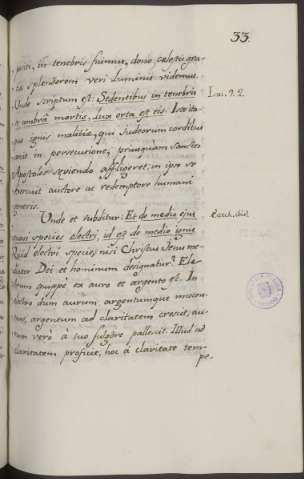 33.
qui in tenebris fuimus, dono cælestis gra-
tiæ splendorem veri luminis videmus.
Unde scriptum est: Sedentibus in tenebris Isai. 9. 2.
et umbra mortis, lux orta est eis. Is ita-
que ignis malitiæ, qui Judæorum cordibus
in persecutione, priusquam sanctos
Apostolos sæviendo affligeret, in ipso
autore ac redemptore humani
generis.
Unde et subditur: Et de medio ejus Ezech. ibid.
quasi species electri, id est de medio ignis
Quid electri species nisi Christus Jesus me-
diator Dei et hominum designatur? Ele-
ctrum quippe ex auro et argento est. In
electro dum aurum argentumque miscen-
tur, argentum ad claritatem crescit, au-
rum vero à suo fulgore pallescit. Illud ad
claritatem proficit, hoc à claritate tem-
pe-